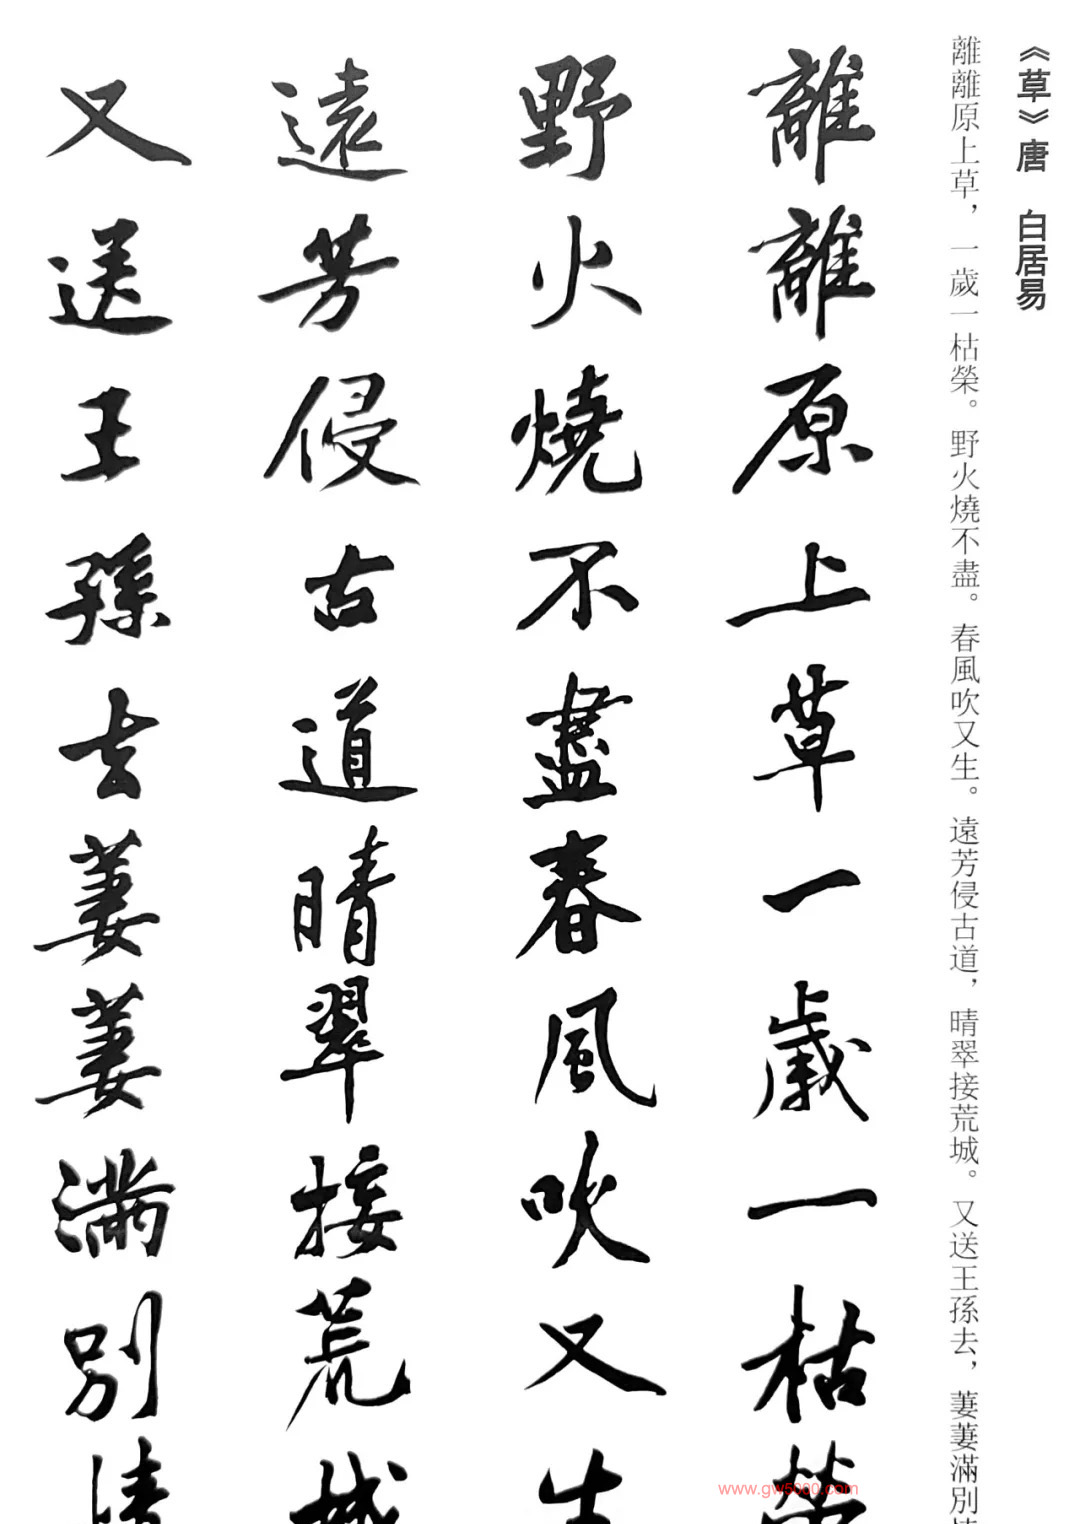 《草》唐　白居易
離離原上草，一歲一枯榮。野火燒不盡。春風吹又生。遠芳侵古道，晴翠接荒城。又送王孫去，萋萋滿別情
離離原上草一歲一枯榮
野火燒不盡春風吹又生
遠芳侵古道晴翠接荒城
又送王孫去萋萋滿別情
www.gw5000.com